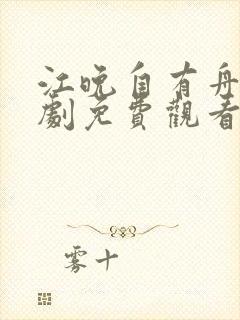 江晚自有舟
劇免費觀看
雾十